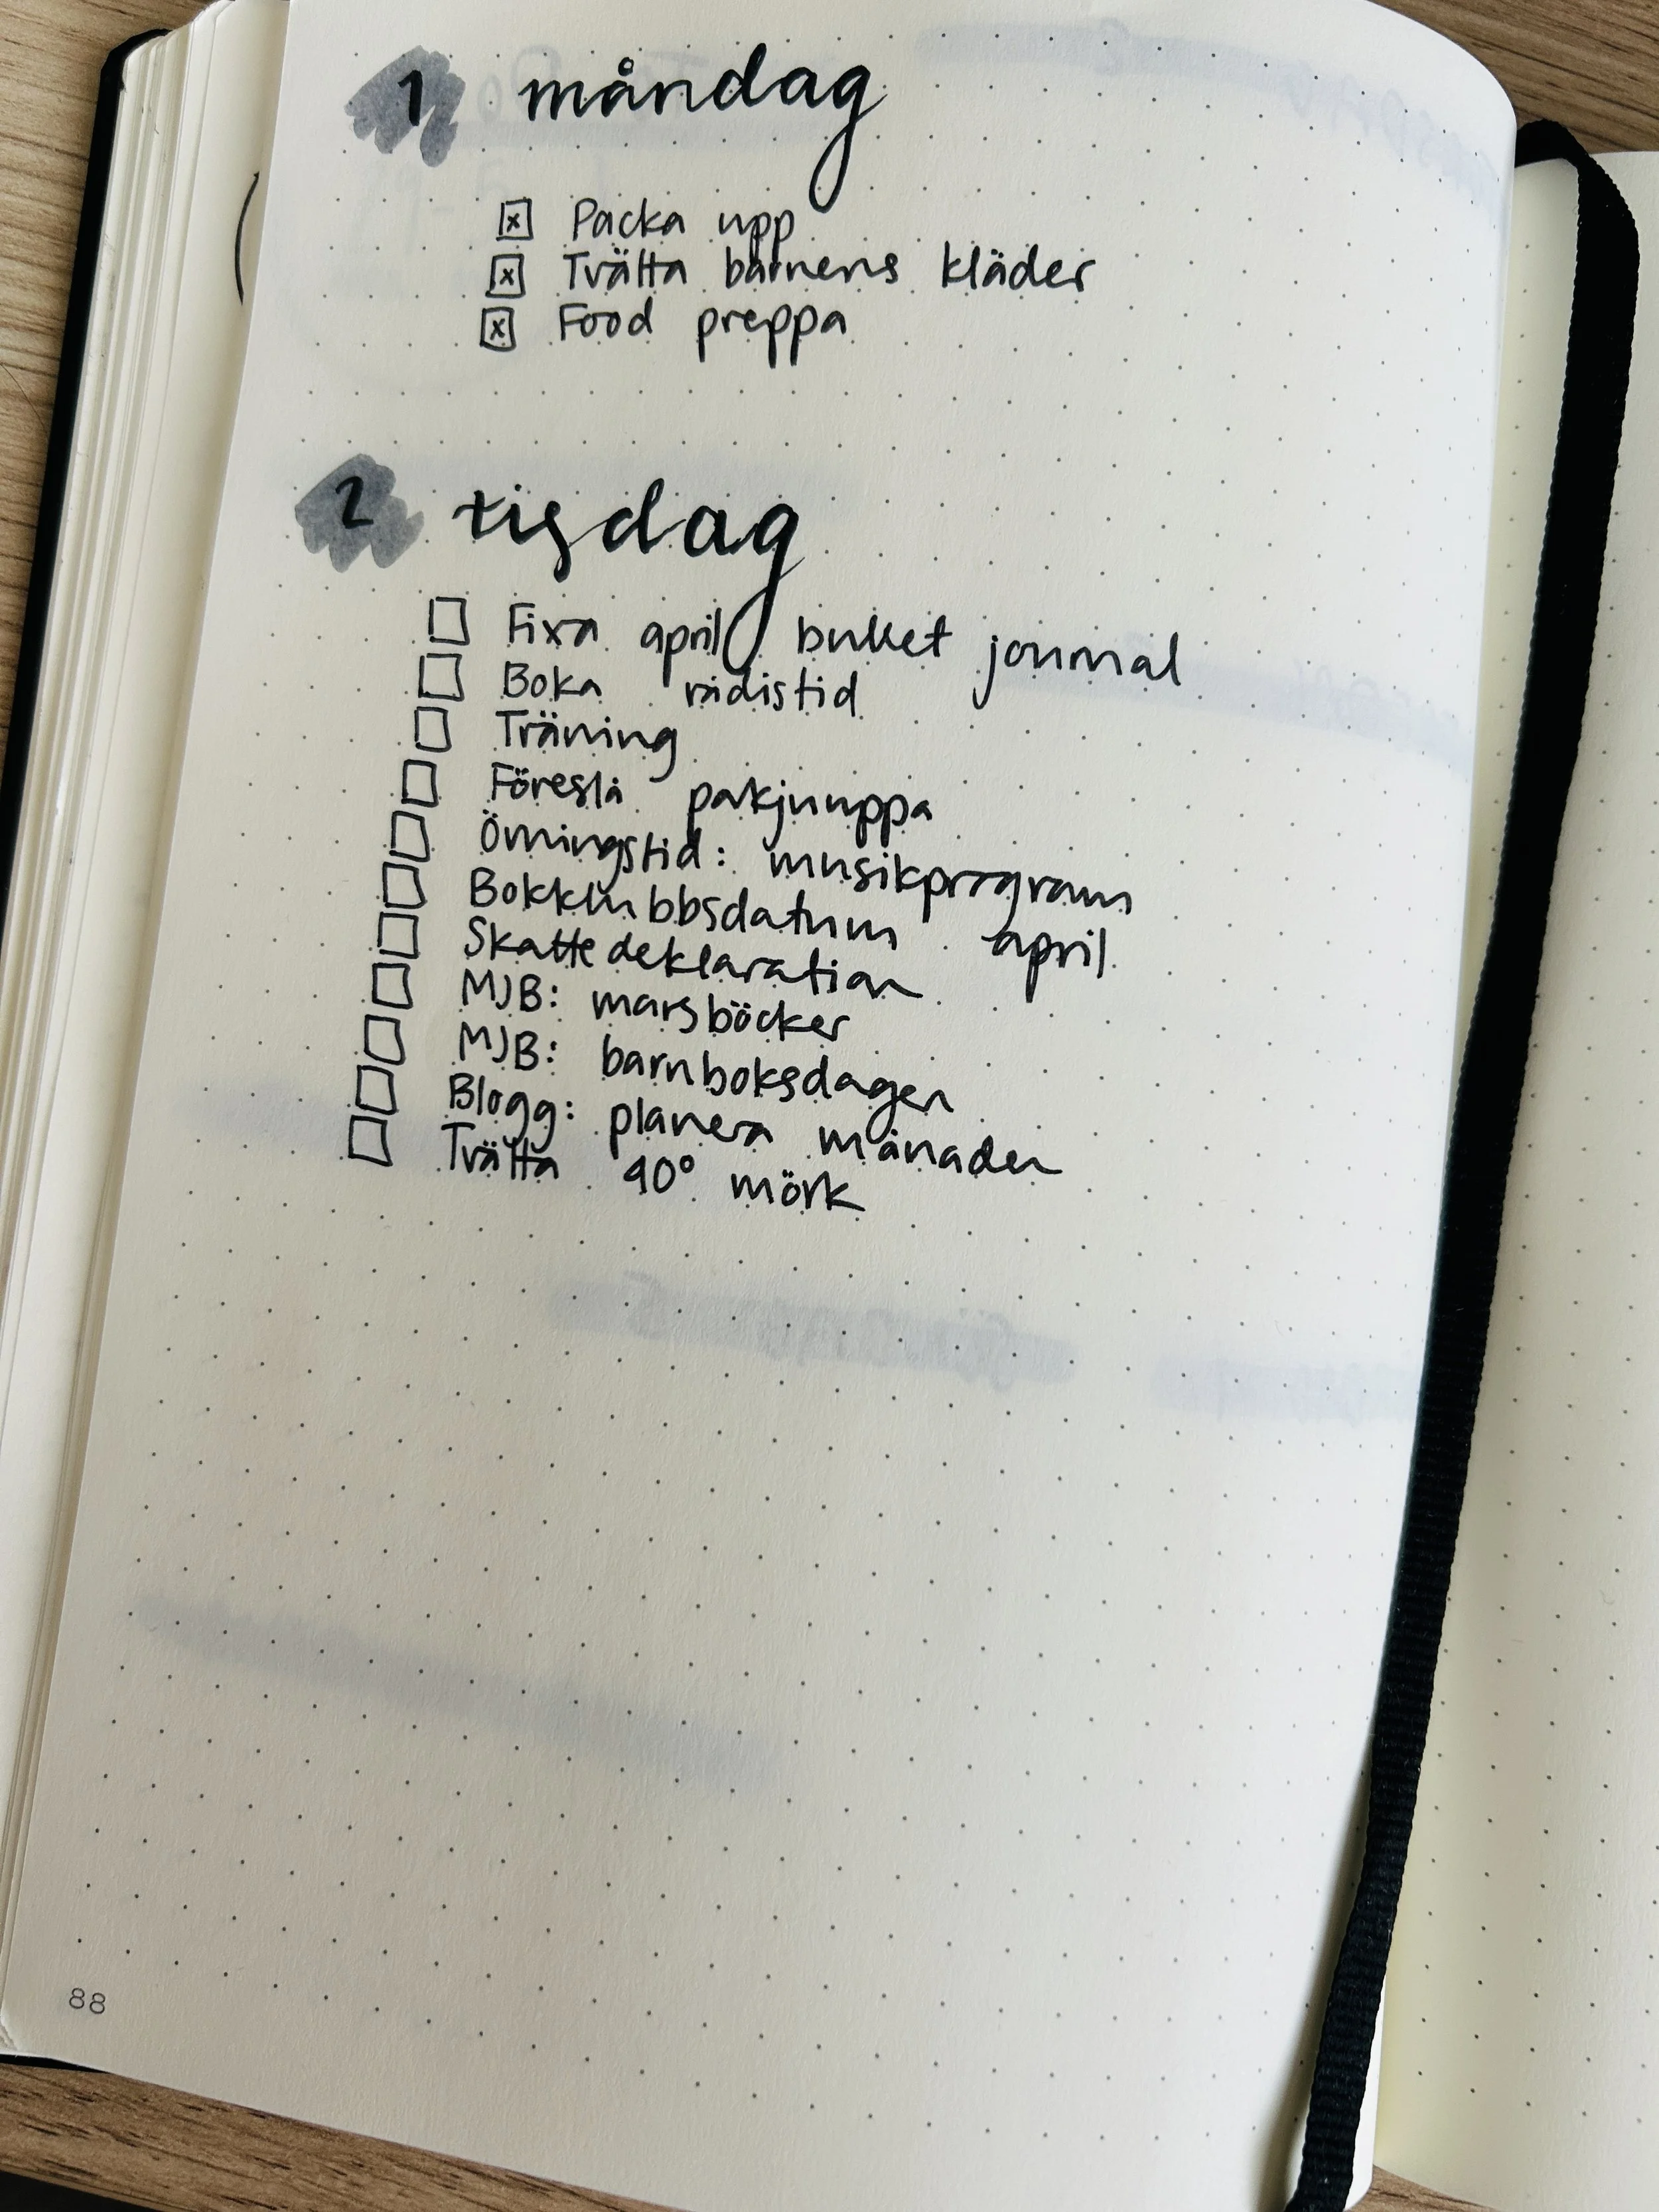 1 måndag
Packa upp
Tvätta barnens kläder
Food preppa
2 tisdag
Fixa april bullet journal
Boka rådistid
Träning
Föreslå
Övningstid: musikprogram
Bokklubbsdatum april
Skattedeklaration
MJB: marsböcker
MJB: barnboksdagen
Blogg: planera månaden
Tvätta 40° mörk
88